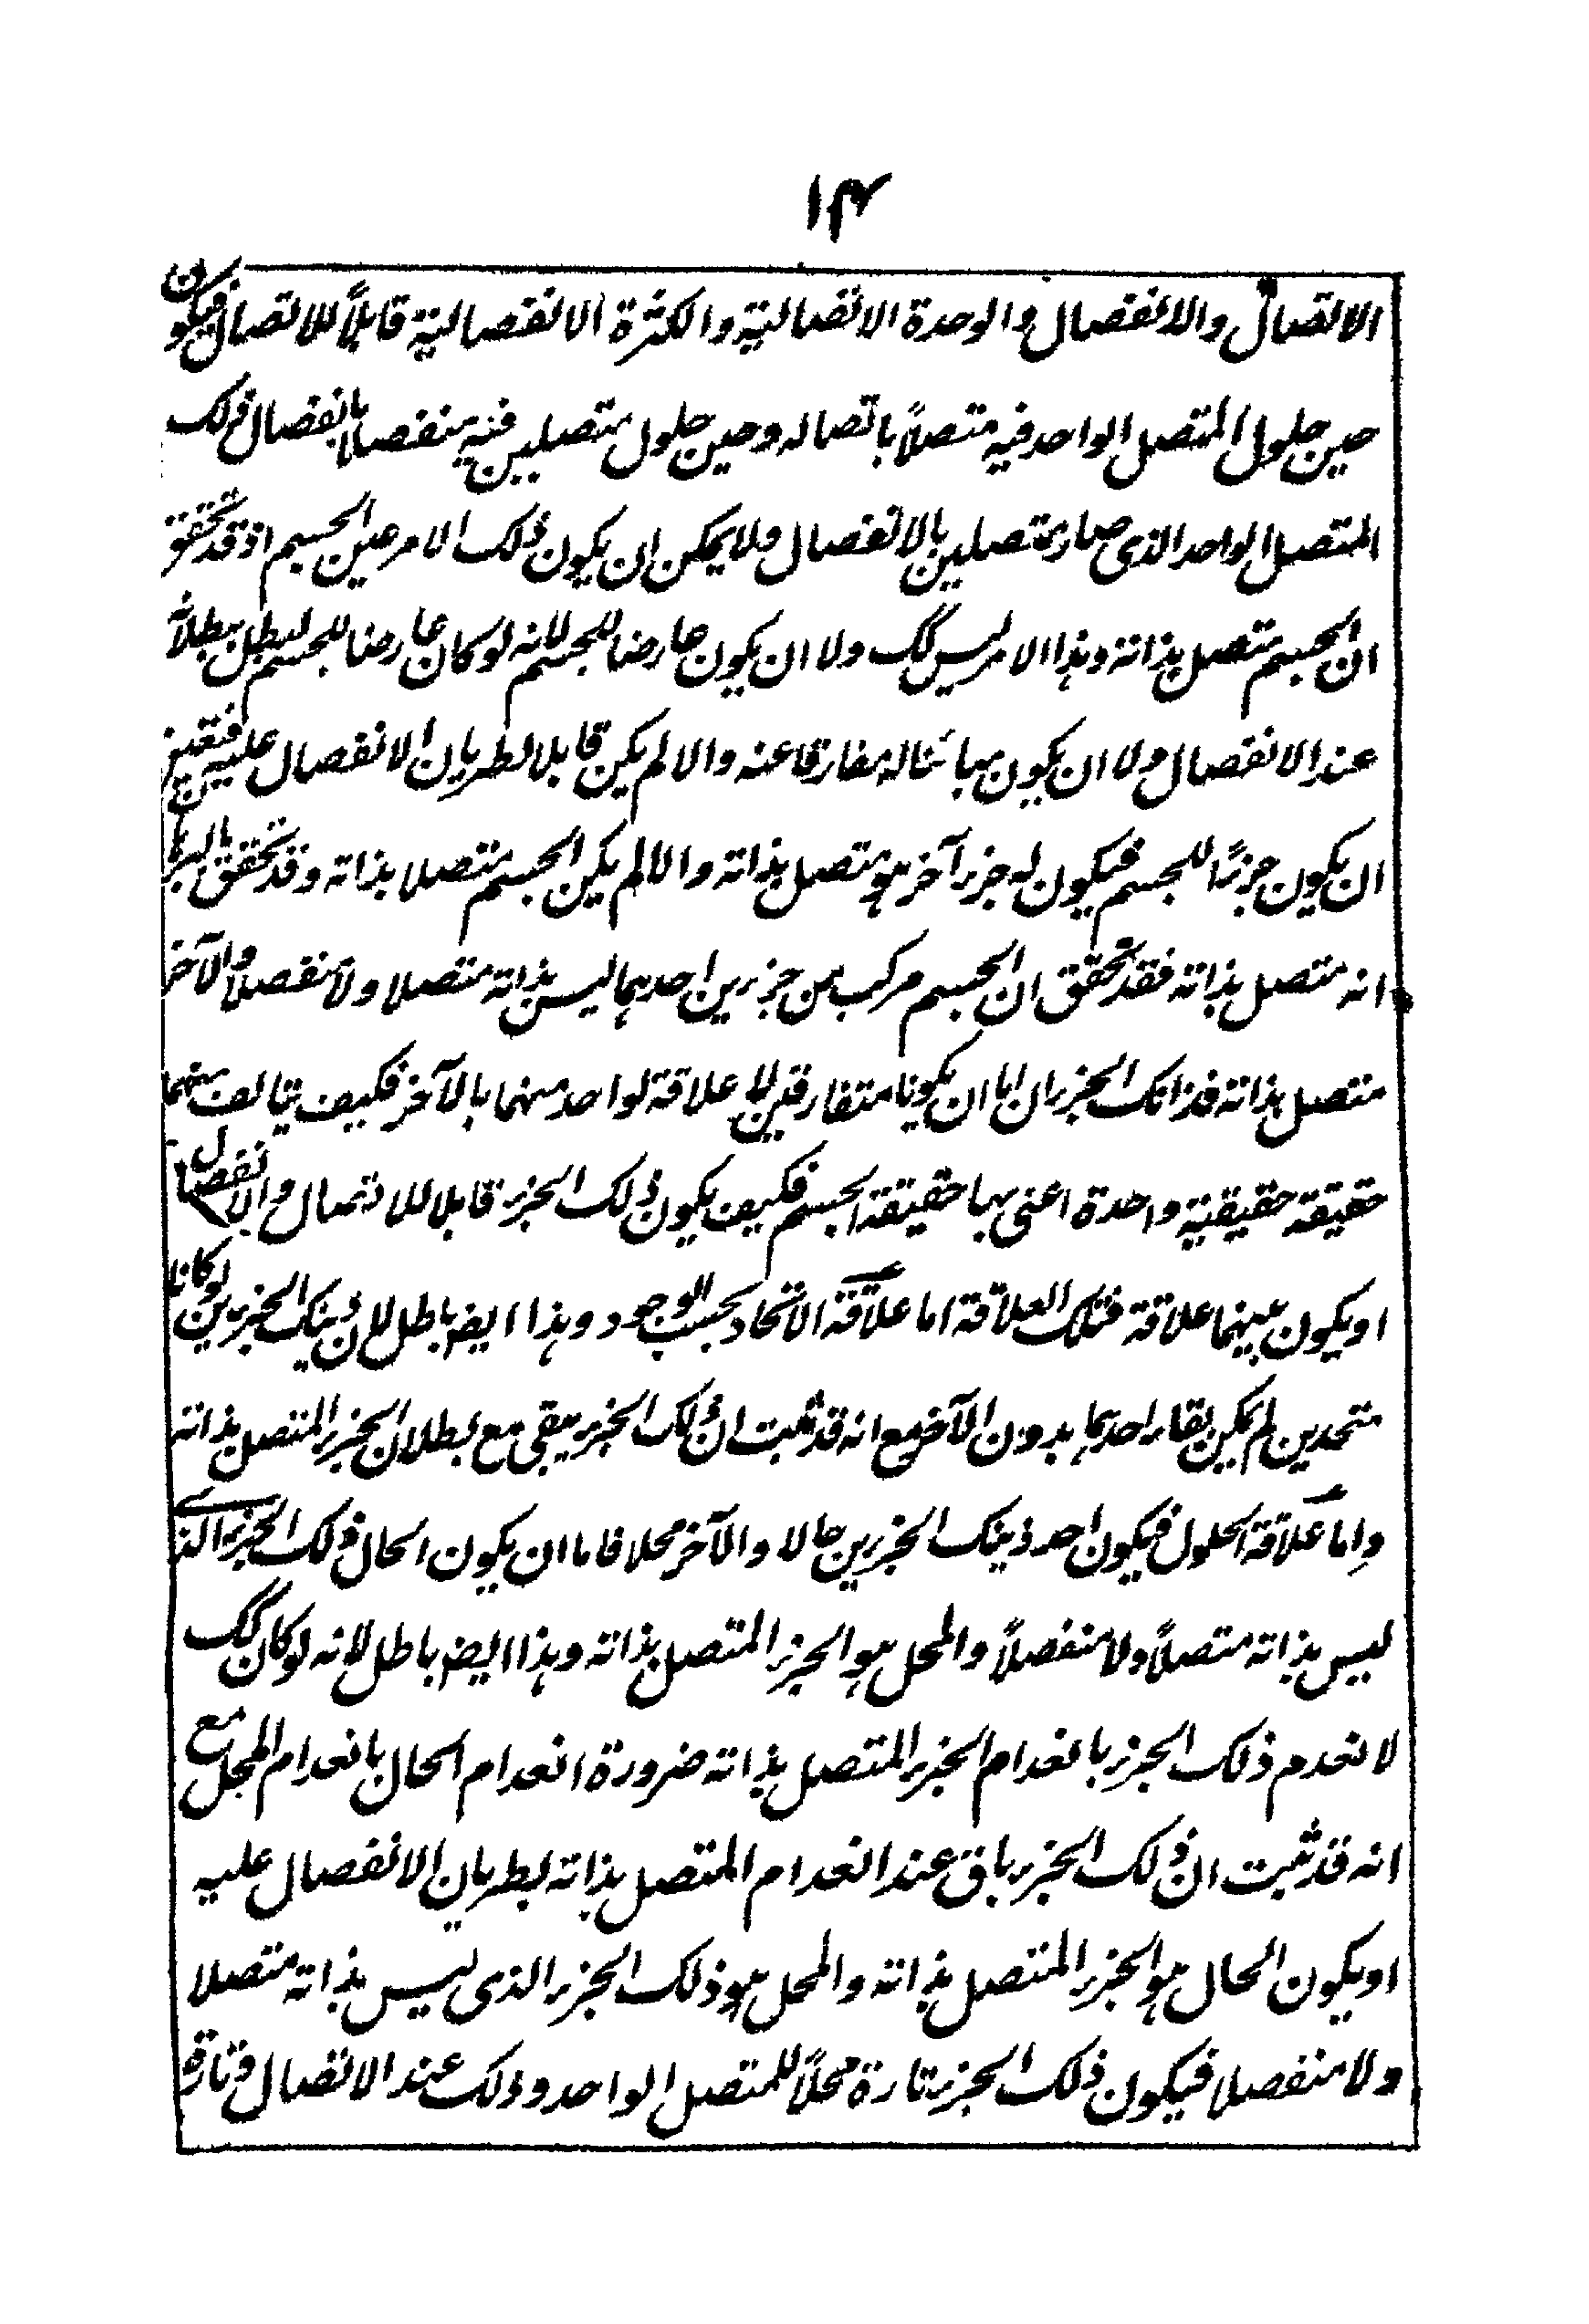 ١٤
الاتصال والانفصال والوحدة الاتصالية والكثرة الانفصالية قابلاً للاتصال فيكون
حين حلول المتصل الواحد فيه متصلاً باتصاله وحين حلول متصلين فيه منفصلا بانفصال ذلك
المتصل الواحد الذى صار متصلين بالانفصال ولا يمكن ان يكون ذلك الامر عين الجسم اذ قد تحقق
ان الجسم متصل بذاته وهذا الامر ليس كك ولا ان يكون عارضا للجسم لانه لو كان عارضا للجسم لبطل ببطلانه
عند الانفصال ولا ان يكون مبائنا له مفارقا عنه والا لم يكن قابلا لطريان الانفصال عليه فتعين
ان يكون جزئا للجسم فيكون له جزء آخر هو متصل بذاته والا لم يكن الجسم متصلا بذاته وقد تحقق
انه متصل بذاته فقد تحقق ان الجسم مركب من جزئين احدهما ليس بذاته متصلا ولا منفصلا والآخر
متصل بذاته فذانك الجزءان اما ان يكونا متفارقين لا علاقة لواحد منهما بالآخر فكيف يتالف منهما
حقيقة حقيقية واحدة اعنى بها حقيقة الجسم فكيف يكون ذلك الجزء قابلا للاتصال والانفصال
او يكون بينهما علاقة فتلك العلاقة اما علاقة الاتحاد بحسب الوجود وهذا ايض باطل لان ذينك الجزئين لو كانا
متحدين لم يكن بقاء احدهما بدون الآخر مع انه قد ثبت ان ذلك الجزء يبقى مع بطلان الجزء المتصل بذاته
واما علاقة الحلول فيكون احد ذينك الجزئين حالا والآخر محلا فاما ان يكون الحال ذلك الجزء الذى
ليس بذاته متصلاً ولا منفصلاً والمحل هو الجزء المتصل بذاته وهذا ايض باطل لانه لو كان كك
لا نعدم ذلك الجزء بانعدام الجزء المتصل بذاته ضرورة انعدام الحال بانعدام المحل مع
انه قد ثبت ان ذلك الجزء باق عند انعدام المتصل بذاته بطريان الانفصال عليه
او يكون الحال هو الجزء المتصل بذاته والمحل هو ذلك الجزء الذى ليس بذاته متصلا
ولا منفصلا فيكون ذلك الجزء تارة محلاً للمتصل الواحد وذلك عند الاتصال وتارة